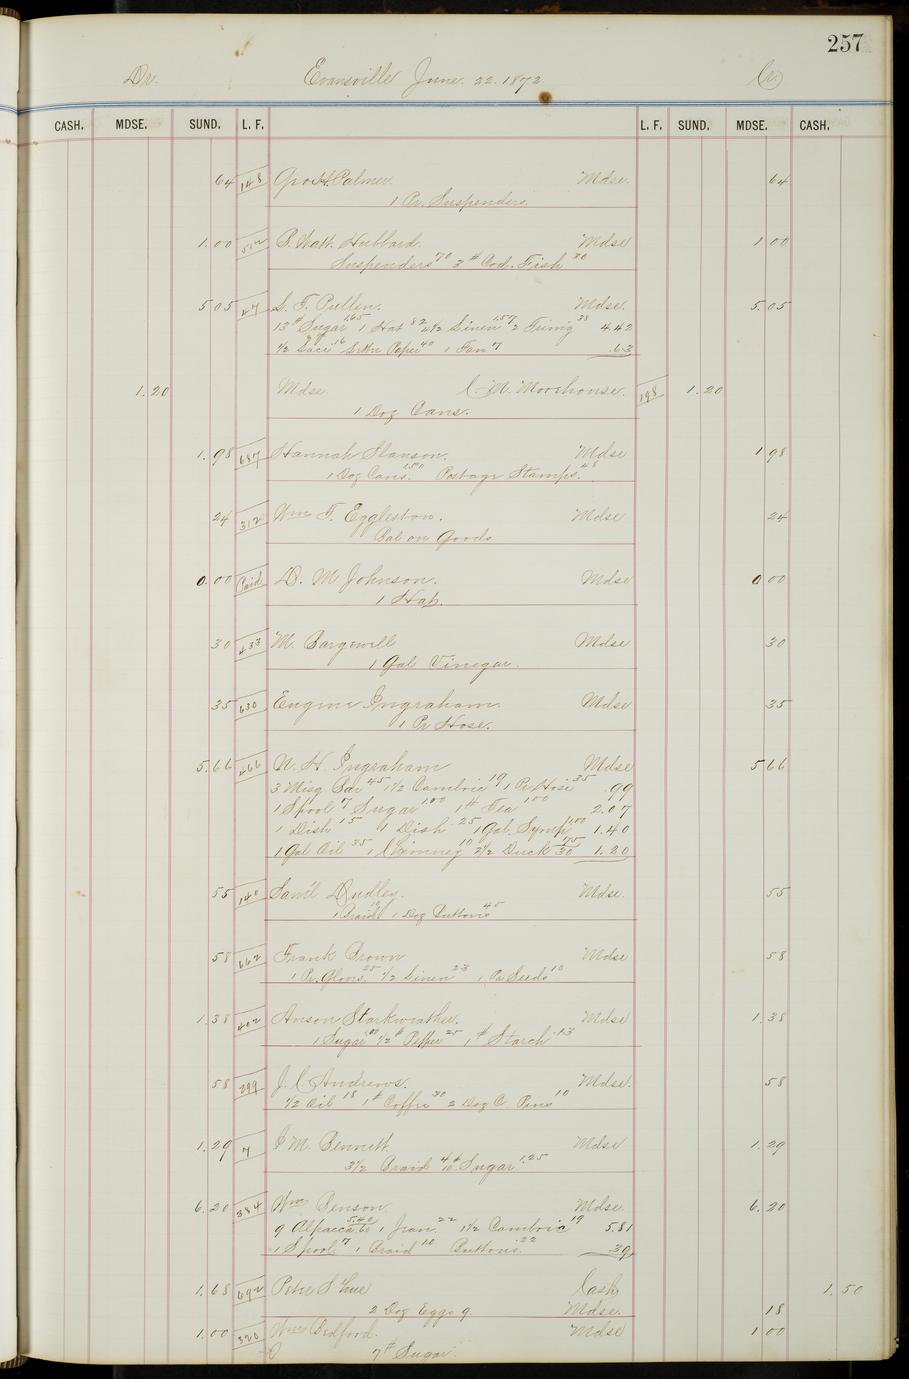 257
Dr. Evansville June. 22. 1872 Cr.
CASH. MDSE. SUND. L. F. L. F. SUND. MDSE. CASH.
64 148 Palmer. Mdse. 64
1 Pr. Suspenders.
1.00 512 B. Watt. Hubbard. Mdse 1 00
Suspenders 70 3 # Cod. Fish 30
5 05 47 L. T. Pullen. Mdse. 5.05
13 # Sugar 1.65 1 Hat 82 4 1/2 Linen 1.57 2 38 4.42
1/2 Lace 16 Paper 40 1 Fan 7 .63
1.20 Mdse C. M. Moorhouse. 198 1.20
1 Doz Cans.
1.98 687 Hannah Hanson. Mdse 1 98
1 Doz Cans. 1.50 Postage Stamps. 48
24 312 Wm F. Eggleston. Mdse 24
Bal on Goods
0.00 Paid D. M Johnson. Mdse 0 00
1 Hat.
30 433 M. Mdse 30
1 Gal Vinegar.
35 630 Eugene Ingraham. Mdse 35
1 Pr Hose.
5.66 466 N. H. Ingraham Mdse 5 66
3 Misq Bar 45 1 1/2 Cambric 19 1 Pr Hose 35 .99
1 Spool 7 Sugar 1.00 1 # Tea 1.00 2.07
1 Dish 15 1 Dish 25 1 Gal. Syrup 1.00 1.40
1 Gal Oil 35 1 Chimney 10 2 1/2 Duck 30 75 1.20
55 140 Saml Dudley. Mdse. 55
1 Braid 10 1 Doz Buttons 45
58 662 Frank Brown Mdse 58
1 Pr. Gloves. 25 1/2 Linen 23 1 Pr Seeds 10
1.38 402 Anson Starkweather. Mdse 1.38
1 Sugar 1.00 1/2 # Pepper 25 1 # Starch .13
58 299 J. C Andrews. Mdse. 58
1/2 Oil 18 1 # Coffee 30 2 Doz C. Pins 10
1.29 7 M. Bennett. Mdse 1.29
3 1/2 Braid 4 10 # Sugar 1.25
6.20 384 Wm Benson. Mdse. 6.20
9 Alpacca 60 5.40 1 Jean 22 1 1/2 Cambric 19 5.81
1 Spool 7 1 Braid 10 Buttons. 22 .39
1.68 692 Peter Cash 1.50
2 Doz Eggs 9 Mdse. 18
1.00 320 Wm Bedford. Mdse 1 00
7 # Sugar.